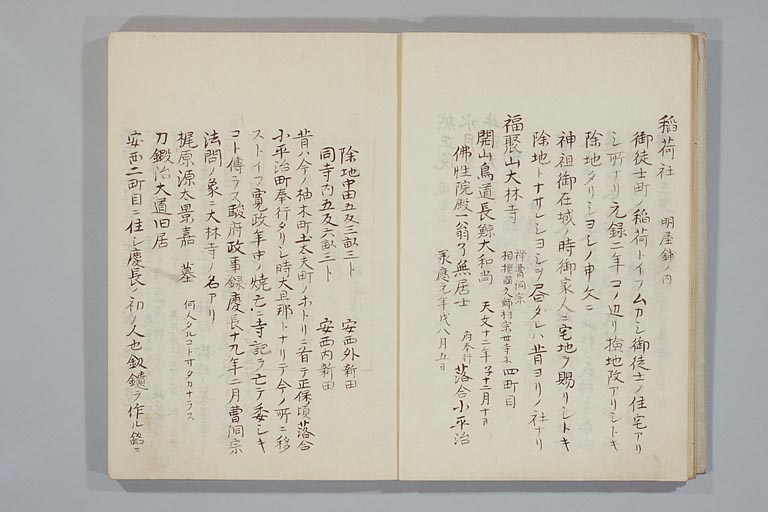 稲荷社 明屋舗ノ内
御徒士町ノ稲荷トイフムカシ御徒士ノ住宅アリ
シ所ナリ元録二年コノ辺リ検地改アリシトキ
除地タリシヨシノ申欠ニ
神祖御在城ノ時御家人ニ宅地ヲ賜リシトキ
除地トナサレシヨシヲ昼タレハ昔ヨリノ社ナリ
福聚山大林寺 禅曹洞宗 相摸国久野村宗世寺末 四町目
開山鳥道長鯨大和尚 天文十二年子十二月十日
佛性院殿一翁了無居士 府奉行落合小平治
承應元年戌八月五日
除地中田五反三畝三ト 安西外新田
同寺内五反六畝三ト 安西内新田
昔ハ今ノ柚木町土太夫町ノホトリニ音テ正保頃落合
小平治町奉行タリシ時大旦那トナリテ今ノ所ニ移
ストイフ寛政年中ノ焼亡ニ寺記ラ亡テ委シキ
コト傳ラス駿府政事録慶長十九年二月曹洞宗
法問ノ象ニ大林寺ノ名アリ
梶原源太景嘉墓 何人タルコトサタカナラス
刀鍛冶大道旧居
安西二町目ニ住シ慶長ノ初ノ人也釼鑓ヲ作ル銘ニ